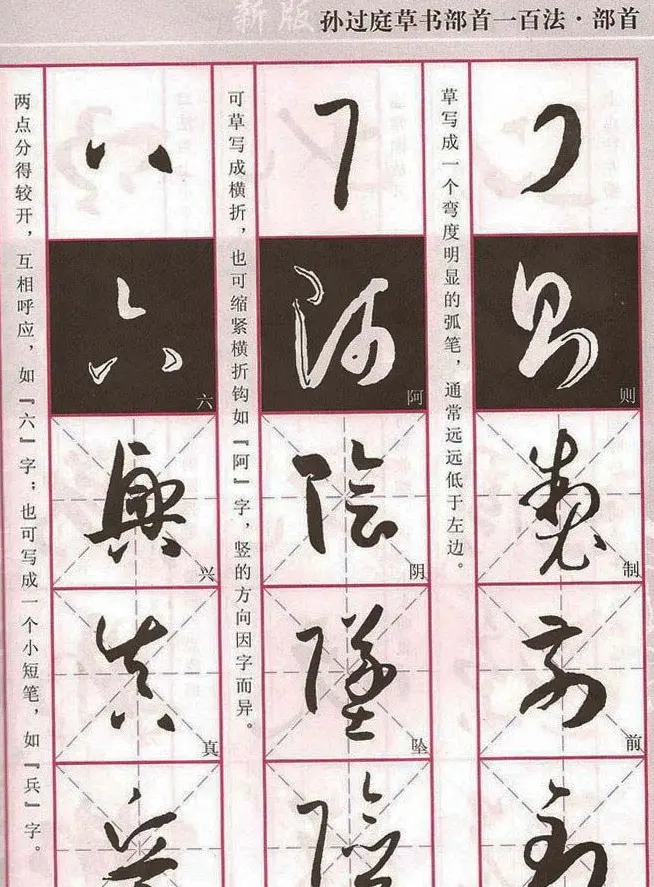 新版
孙过庭草书部首一百法·部首
草写成一个弯度明显的弧笔，通常远远低于左边。
则
制
前
可草写成横折，也可缩紧横折钩如『阿』字，竖的方向因字而异。
阿
阴
坠
两点分得较开，互相呼应，如『六』字；也可写成一个小短笔，如『兵』字。
六
兴
真